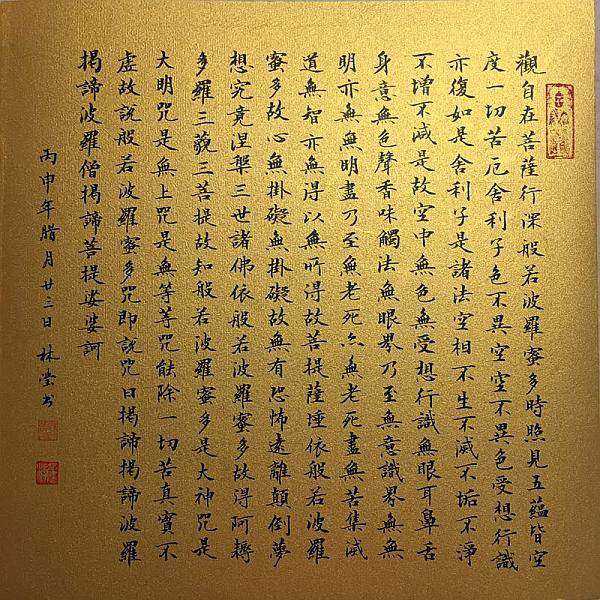 觀自在菩薩行深般若波羅蜜多時照見五蘊皆空
度一切苦厄舍利子色不異空空不異色受想行識
亦復如是舍利子是諸法空相不生不滅不垢不淨
不增不減是故空中無色無受想行識無眼耳鼻舌
身意無色聲香味觸法無眼界乃至無意識界無無
明亦無無明盡乃至無老死亦無老死盡無苦集滅
道無智亦無得以無所得故菩提薩埵依般若波羅
蜜多故心無掛礙無掛礙故無有恐怖遠離顛倒夢
想究竟涅槃三世諸佛依般若波羅蜜多故得阿耨
多羅三藐三菩提故知般若波羅蜜多是大神咒是
大明咒是無上咒是無等等咒能除一切苦真實不
虛故說般若波羅蜜多咒即說咒曰揭諦揭諦波羅
揭諦波羅僧揭諦菩提娑婆訶
丙申年腊月廿三日 林书